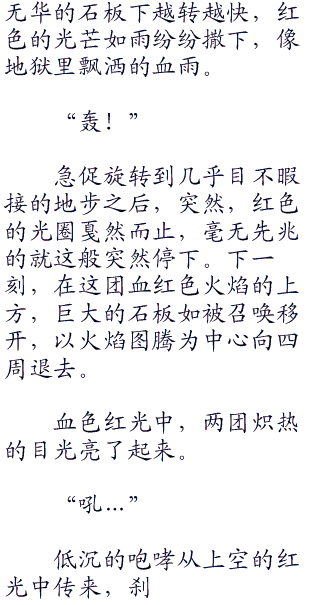 无华的石板下越转越快，红
色的光芒如雨纷纷撒下，像
地狱里飘洒的血雨。
“轰！”
急促旋转到几乎目不暇
接的地步之后，突然，红色
的光圈戛然而止，毫无先兆
的就这般突然停下。下一
刻，在这团血红色火焰的上
方，巨大的石板如被召唤移
开，以火焰图腾为中心向四
周退去。
血色红光中，两团炽热
的目光亮了起来。
“吼…”
低沉的咆哮从上空的红
光中传来，刹